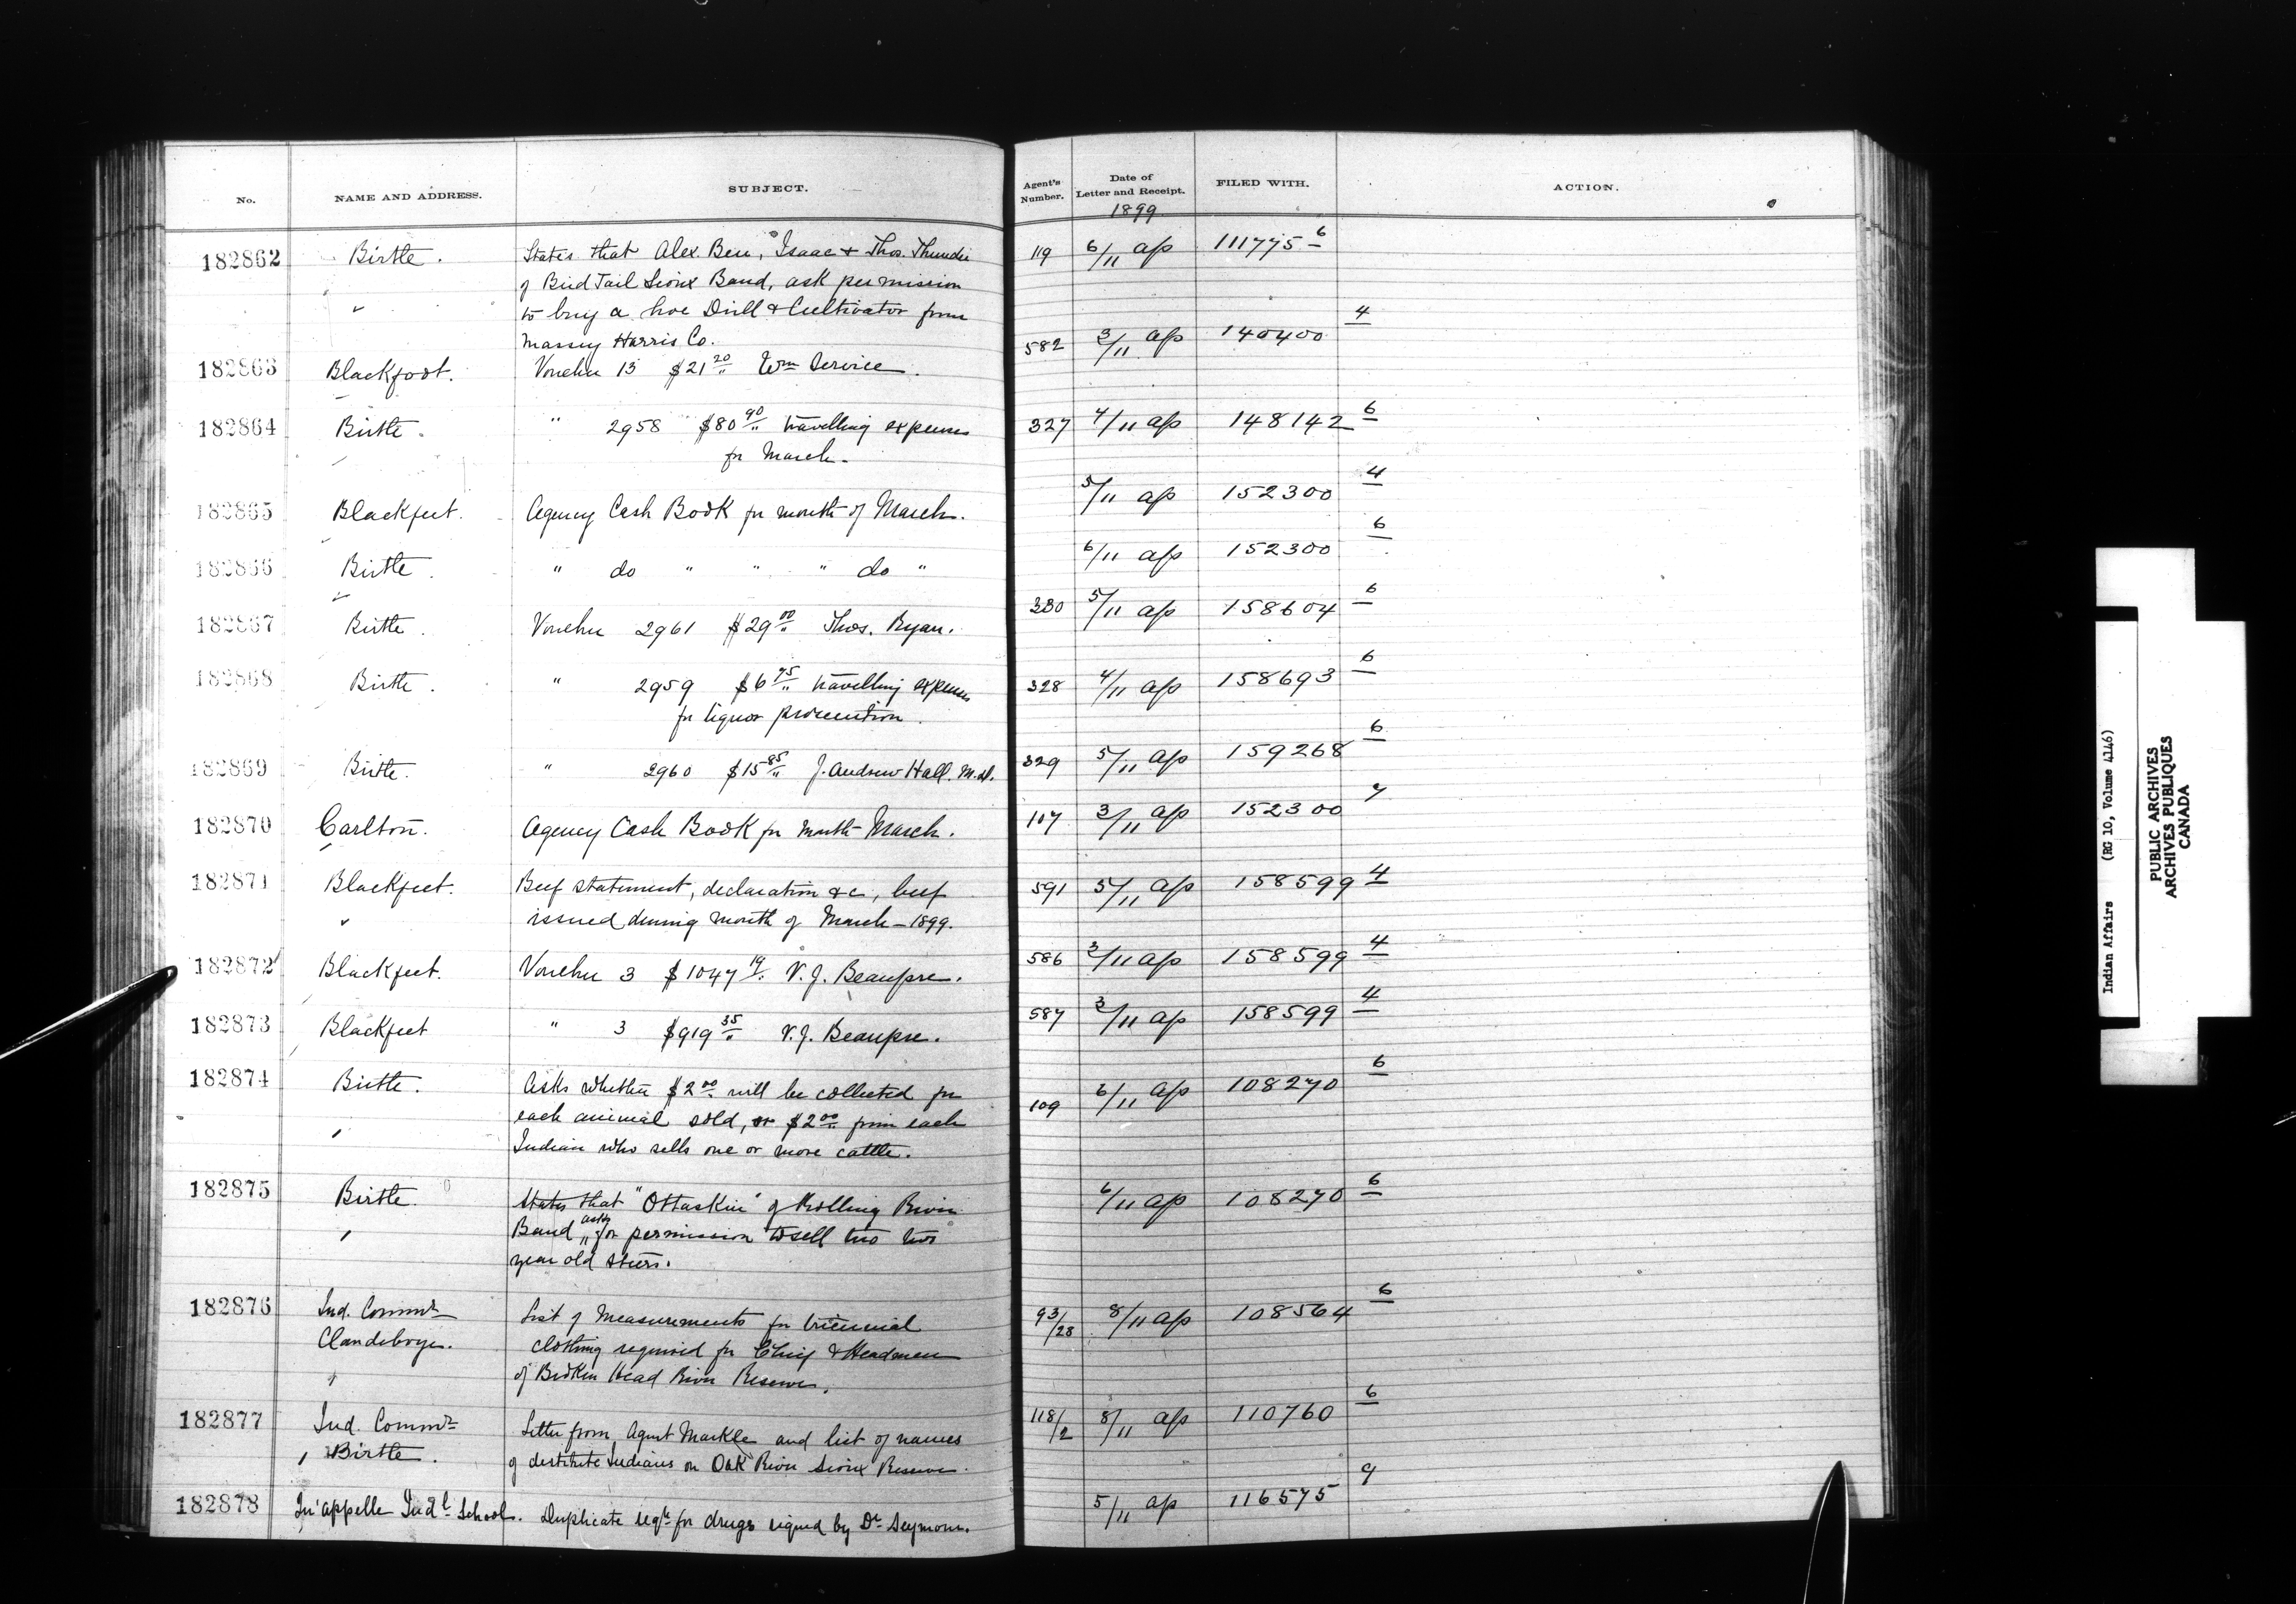 No. NAME AND ADDRESS. SUBJECT. Agent's Number. Date of Letter and Receipt. FILED WITH. ACTION.
1899
182862 Birtle. States that Alex. Ben, Isaac & Thos. Thunder 119 6/11 ap 111775 6
of Bird Tail Sioux Band, ask permission
to buy a hoe Drill & Cultivator from
Massey Harris Co. 582 3/11 ap 140400 4
182863 Blackfoot. Voucher 13 $21 20/.. Wm Service.
182864 Birtle. " 2958 $80 90/.. travelling expenses 327 4/11 ap 148142 6
for March.
182865 Blackfeet. Agency Cash Book for month of March. 5/11 ap 152300 4
182866 Birtle. " do " " " do " 6/11 ap 152300 6
182867 Birtle. Voucher 2961 $29 00/.. Thos. Ryan. 330 5/11 ap 158604 6
182868 Birtle. " 2959 $6 75/.. travelling expenses 328 4/11 ap 158693 6
for liquor prosecution.
182869 Birtle. " 2960 $15 85/.. J. Andrew Hall. M.D. 329 5/11 ap 159268 6
182870 Carlton. Agency Cash Book for month March. 107 3/11 ap 152300 7
182871 Blackfeet. Beef statement, declaration &c, beef 591 5/11 ap 158599 4
issued during month of March - 1899.
182872 Blackfeet. Voucher 3 $1047 19/.. V. J. Beaupre. 586 3/11 ap 158599 4
182873 Blackfeet " 3 $919 35/.. V. J. Beaupre. 587 3/11 ap 158599 4
182874 Birtle. Asks whether $2 00/.. will be collected for 109 6/11 ap 108270 6
each animal sold, or $2 00/.. from each
Indian who sells one or more cattle.
182875 Birtle. States that "Ottaskin" of Rolling River 6/11 ap 108270 6
Band asks for permission to sell two two
year old steers.
182876 Ind. Commr List of Measurements for triennial 93/28 8/11 ap 108564 6
Clandeboye. clothing required for Chief & Headmen
of Broken Head River Reserve.
182877 Ind. Commr Letter from Agent Markle and list of names 118/2 8/11 ap 110760 6
Birtle. of destitute Indians on Oak River Sioux Reserve.
182878 Qu'appelle Indl School. Duplicate reqn for drugs signed by Dr Seymour. 5/11 ap 116575 9
Indian Affairs (RG 10, Volume 4146)
PUBLIC ARCHIVES
ARCHIVES PUBLIQUES
CANADA